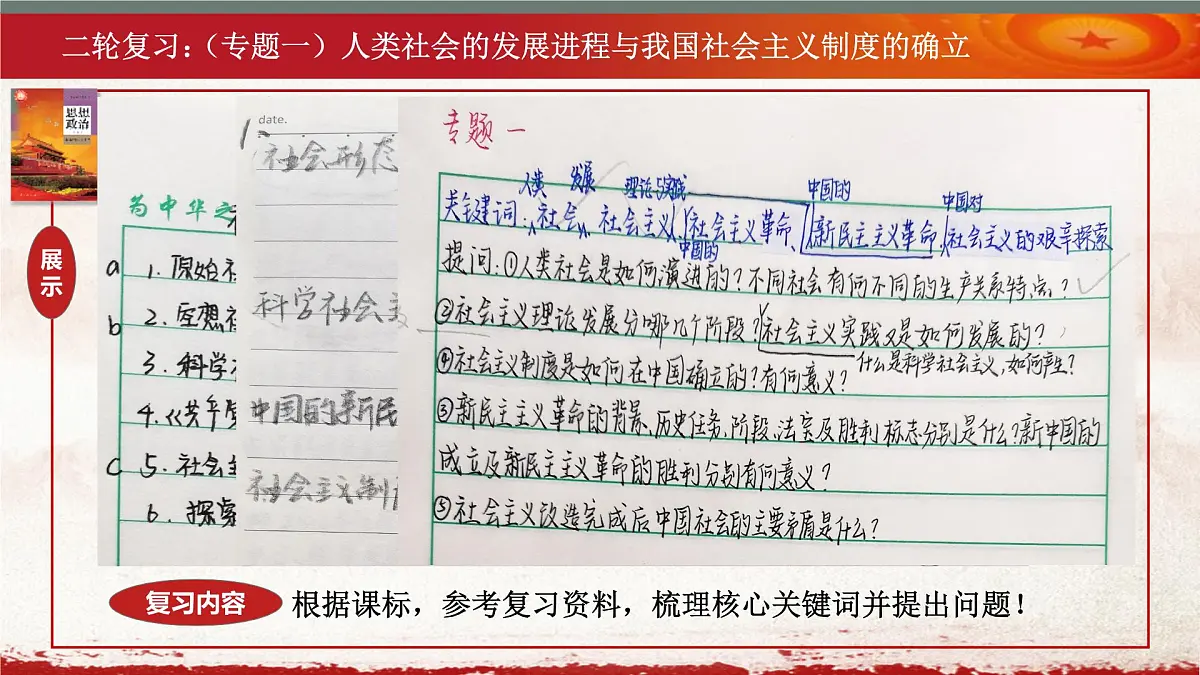 二轮复习：（专题一）人类社会的发展进程与我国社会主义制度的确立
思想
政治
展示
为中华之
a 1. 原始社
2. 空想社
b
3. 科学社
4.《共产党
c 5. 社会主
6. 探索
date.
1、
社会形态
科学社会主
中国的新民
社会主义制度
专题一
人类 发展 理论与实践 中国的 中国对
关键词：社会、社会主义、社会主义革命、新民主主义革命、社会主义的艰辛探索
中国的
提问：①人类社会是如何演进的？不同社会有何不同的生产关系特点？
②社会主义理论发展分哪几个阶段？社会主义实践又是如何发展的？
④社会主义制度是如何在中国确立的？有何意义？
什么是科学社会主义，如何产生？
③新民主主义革命的背景、历史任务、阶段、法宝及胜利标志分别是什么？新中国的
成立及新民主主义革命的胜利分别有何意义？
⑤社会主义改造完成后中国社会的主要矛盾是什么？
复习内容
根据课标，参考复习资料，梳理核心关键词并提出问题！